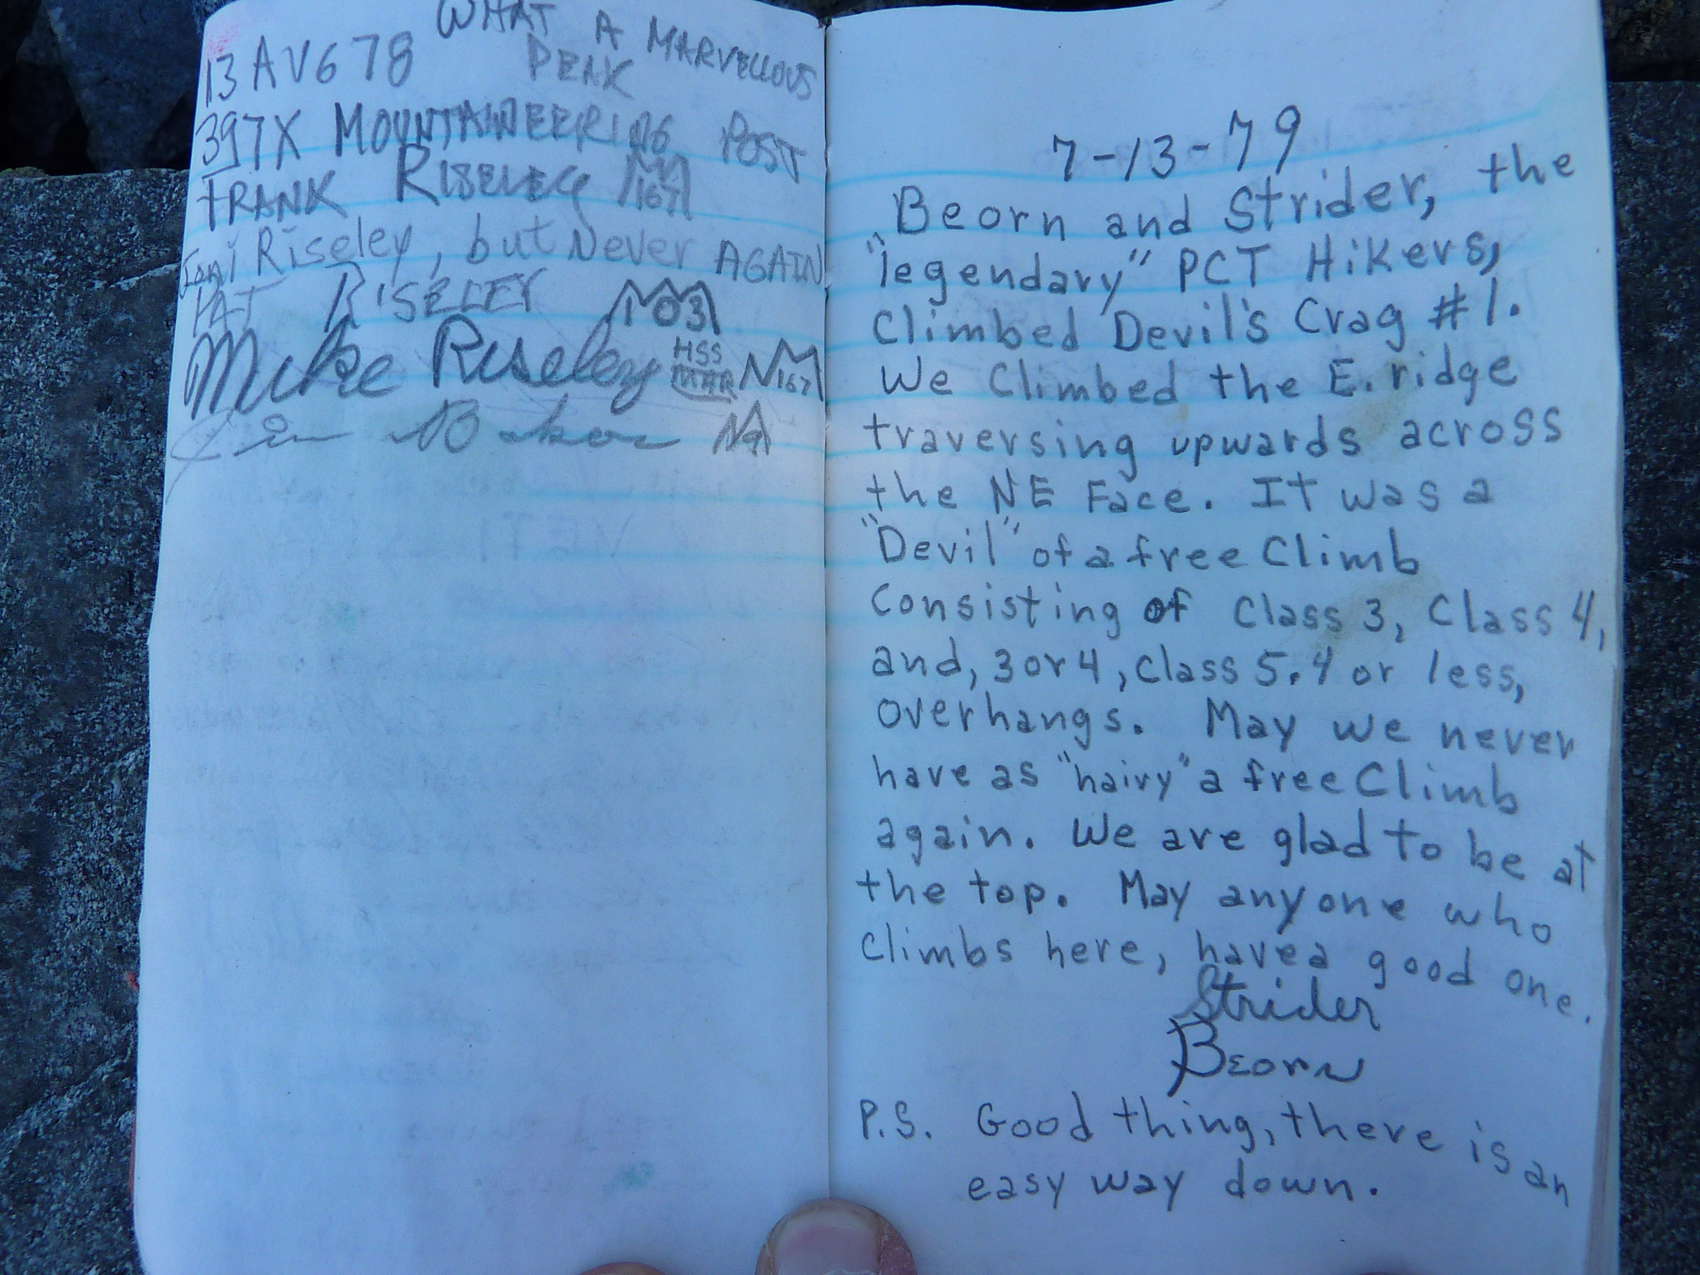 13 AUG 78 WHAT A MARVELLOUS
PEAK
397X MOUNTAINEERING POST
FRANK RISELEY 167
Riseley, but Never AGAIN
PAT RISELEY 103
Mike Riseley HSS 167
7-13-79
Beorn and Strider, the
"legendary" PCT Hikers,
Climbed Devil's Crag #1.
We Climbed the E. ridge
traversing upwards across
the NE Face. It was a
"Devil" of a free Climb
Consisting of Class 3, Class 4,
and, 3 or 4, Class 5.4 or less,
overhangs. May we never
have as "hairy" a free Climb
again. We are glad to be at
the top. May anyone who
Climbs here, have a good one.
Strider
Beorn
P.S. Good thing, there is an
easy way down.